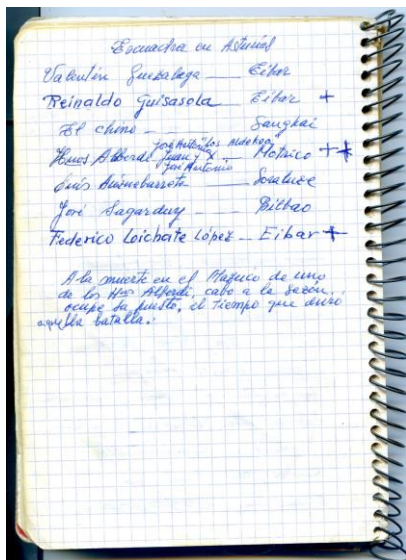 Escuadra en Asturias
Valentín Guezalaga — Eibar
Reinaldo Guisasola — Eibar +
El chino — Sanghai
José Antonio
Hnos Alberdi Juan y X — Motrico ++
José Antonio
Luis — Soraluze
José Sagarduy — Bilbao
Federico Loichate López — Eibar +
A la muerte en el Mazuco de uno
de los Hnos Alberdi, cabo a la sazón,
ocupe su puesto, el tiempo que duró
aquella batalla.